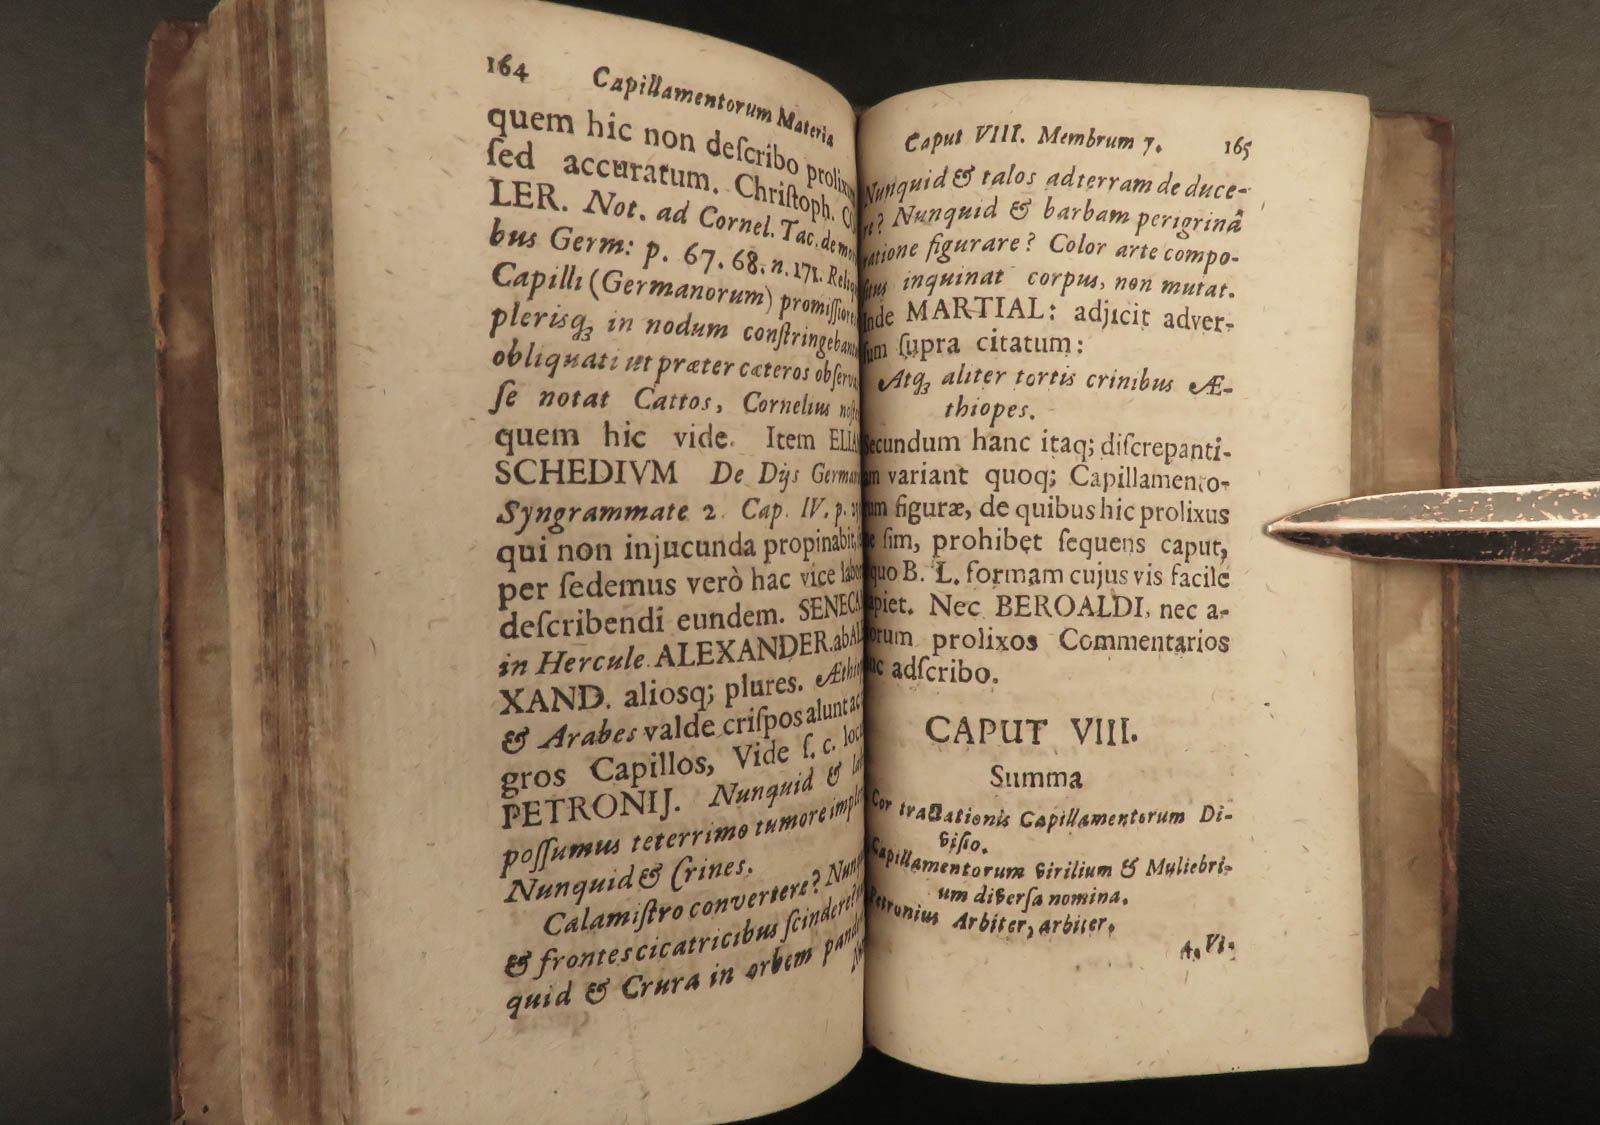 164 Capillamentorum Materia
quem hic non deſcribo prolixum
ſed accuratum. Chriſtoph.
LER. Not. ad Cornel. Tac. de mori
bus Germ: p. 67. 68. n. 171.
Capilli (Germanorum) promiſſiores
pleriſqꝫ in nodum conſtringebant
obliquati ut præter cæteros obſerva
ſe notat Cattos, Cornelius
quem hic vide. Item
SCHEDIVM De Dijs
Syngrammate 2. Cap. IV. p.
qui non injucunda propinabit,
per ſedemus verò hac vice
deſcribendi eundem. SENECA
in Hercule. ALEXANDER. ab
XAND. aliosq; plures.
& Arabes valde criſpos alunt ac
gros Capillos, Vide ſ. c.
PETRONIJ. Nunquid &
poſſumus teterrimo tumore
Nunquid & Crines.
Calamiſtro convertere?
& frontes cicatricibus ſcindere?
quid & Crura in orbem
Caput VIII. Membrum 7. 165
Nunquid & talos ad terram de duce-
re? Nunquid & barbam peregrinâ
ratione figurare? Color arte compo-
ſitus inquinat corpus, non mutat.
Inde MARTIAL: adjicit adver-
ſum ſupra citatum:
Atqꝫ aliter tortis crinibus Æ-
thiopes.
Secundum hanc itaq; diſcrepanti-
am variant quoq; Capillamento-
rum figuræ, de quibus hic prolixus
ne ſim, prohibet ſequens caput,
quo B. L. formam cujus vis facile
apiet. Nec BEROALDI, nec a-
orum prolixos Commentarios
adſcribo.
CAPUT VIII.
Summa
Cor tractationis Capillamentorum Di-
viſio.
Capillamentorum virilium & Muliebri-
um diverſa nomina.
Petronius Arbiter, arbiter.
A. Vi-